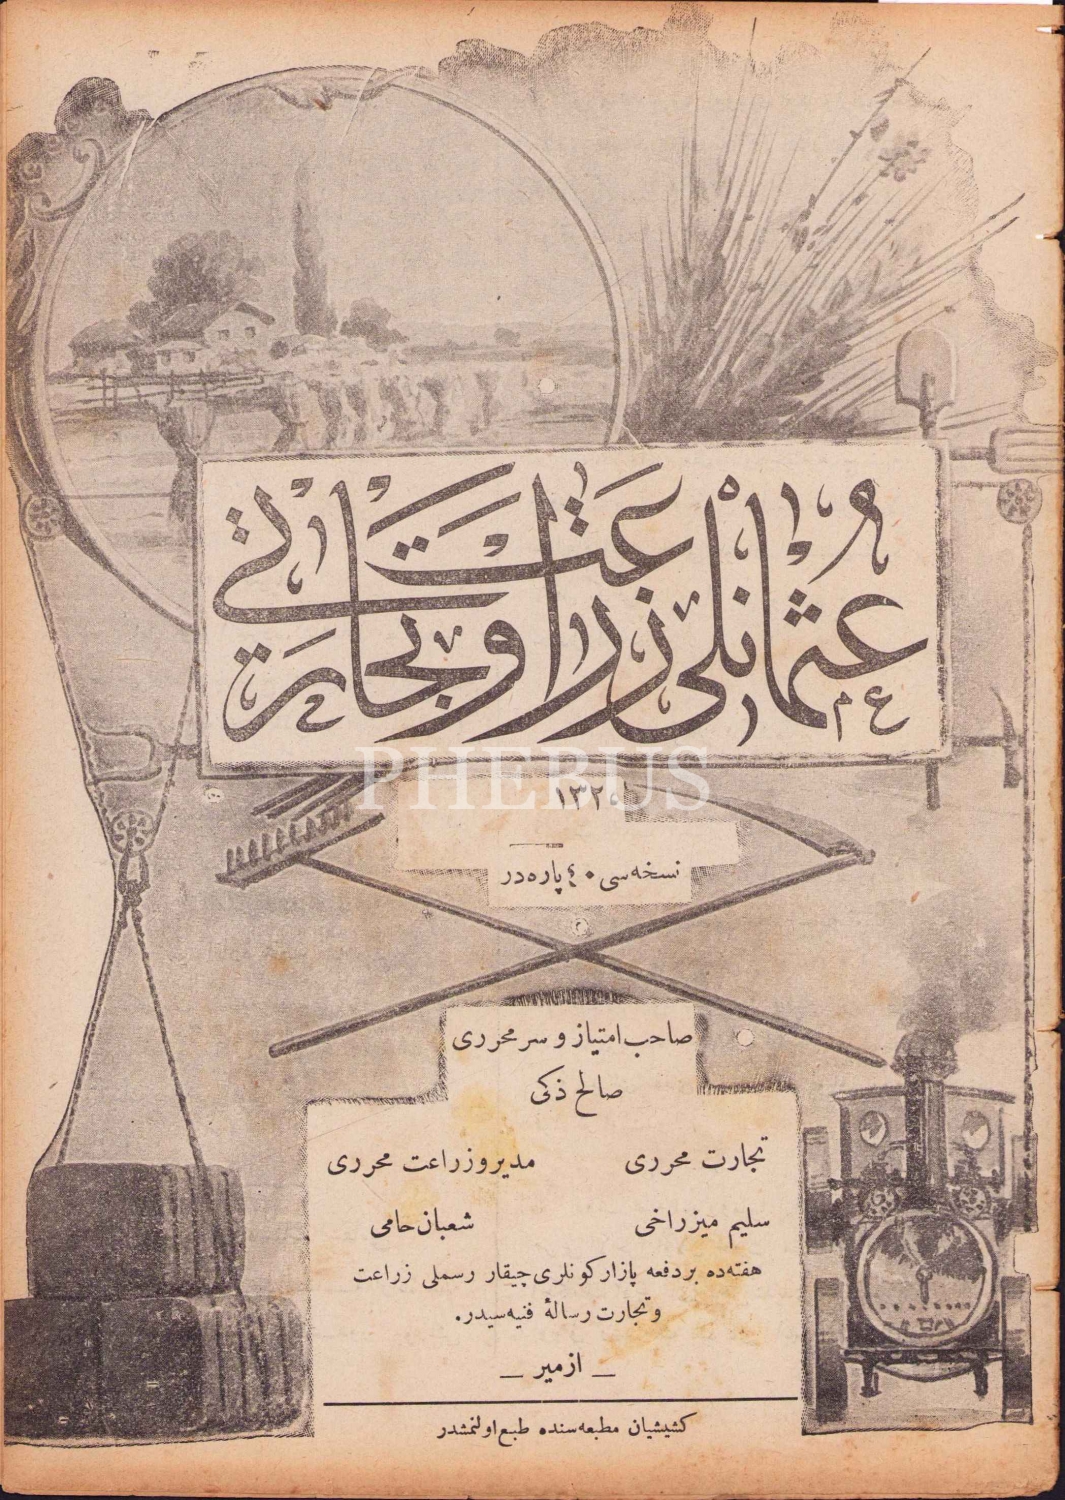 عثمانلی زراعت و تجارتی
ع م
PHEBUS
نسخه‌سی ٤٠ پاره‌در
صاحب امتیاز و سر محرری
صالح ذکی
تجارت محرری
مدیر و زراعت محرری
سلیم میزراخی
شعبان حامی
هفته‌ده بر دفعه پازار کونلری چیقار رسملی زراعت
و تجارت رسالۀ فنیه‌سیدر.
— ازمیر —
کشیشیان مطبعه‌سنده طبع اولنمشدر